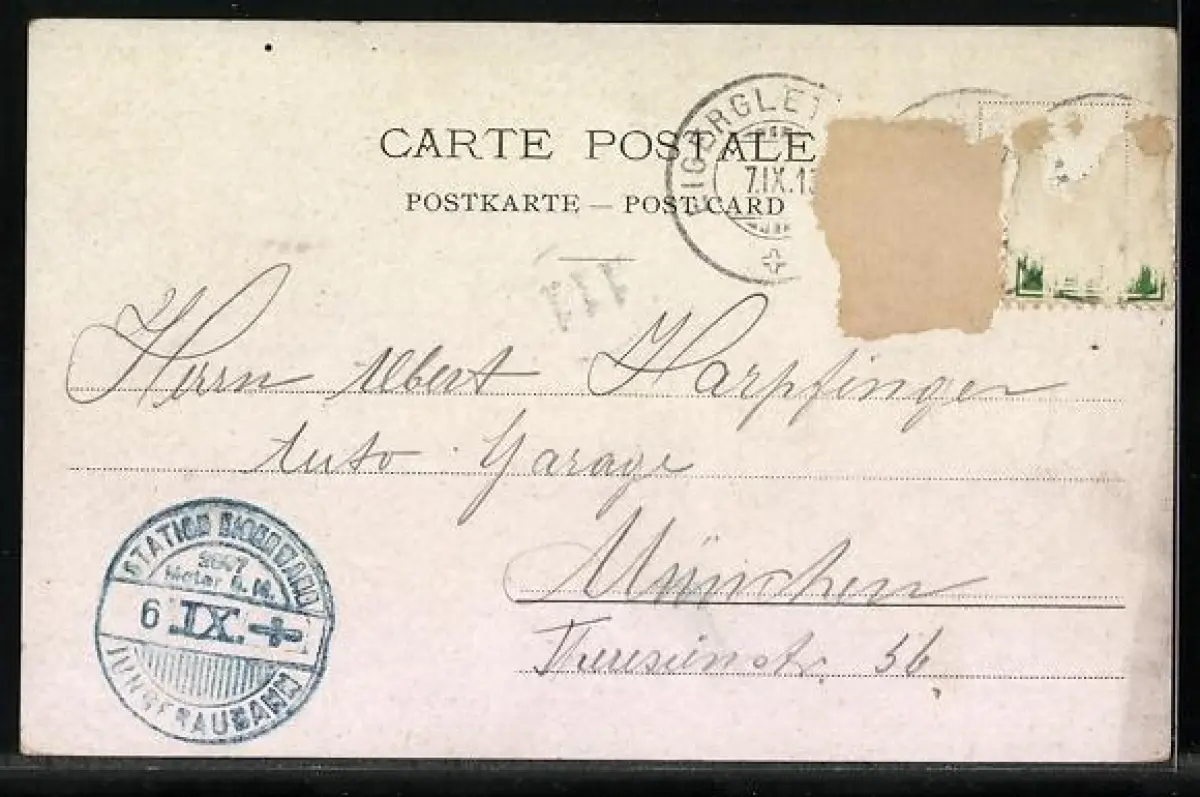 CARTE POSTALE
POSTKARTE — POST CARD
EIGERGLET
7.IX.13
111
Herrn Albert Harpfinger
Auto Garage
München
Theresienstr. 56
STATION EIGERWAND
Meter ü. M.
6 IX.
JUNGFRAUBAHN